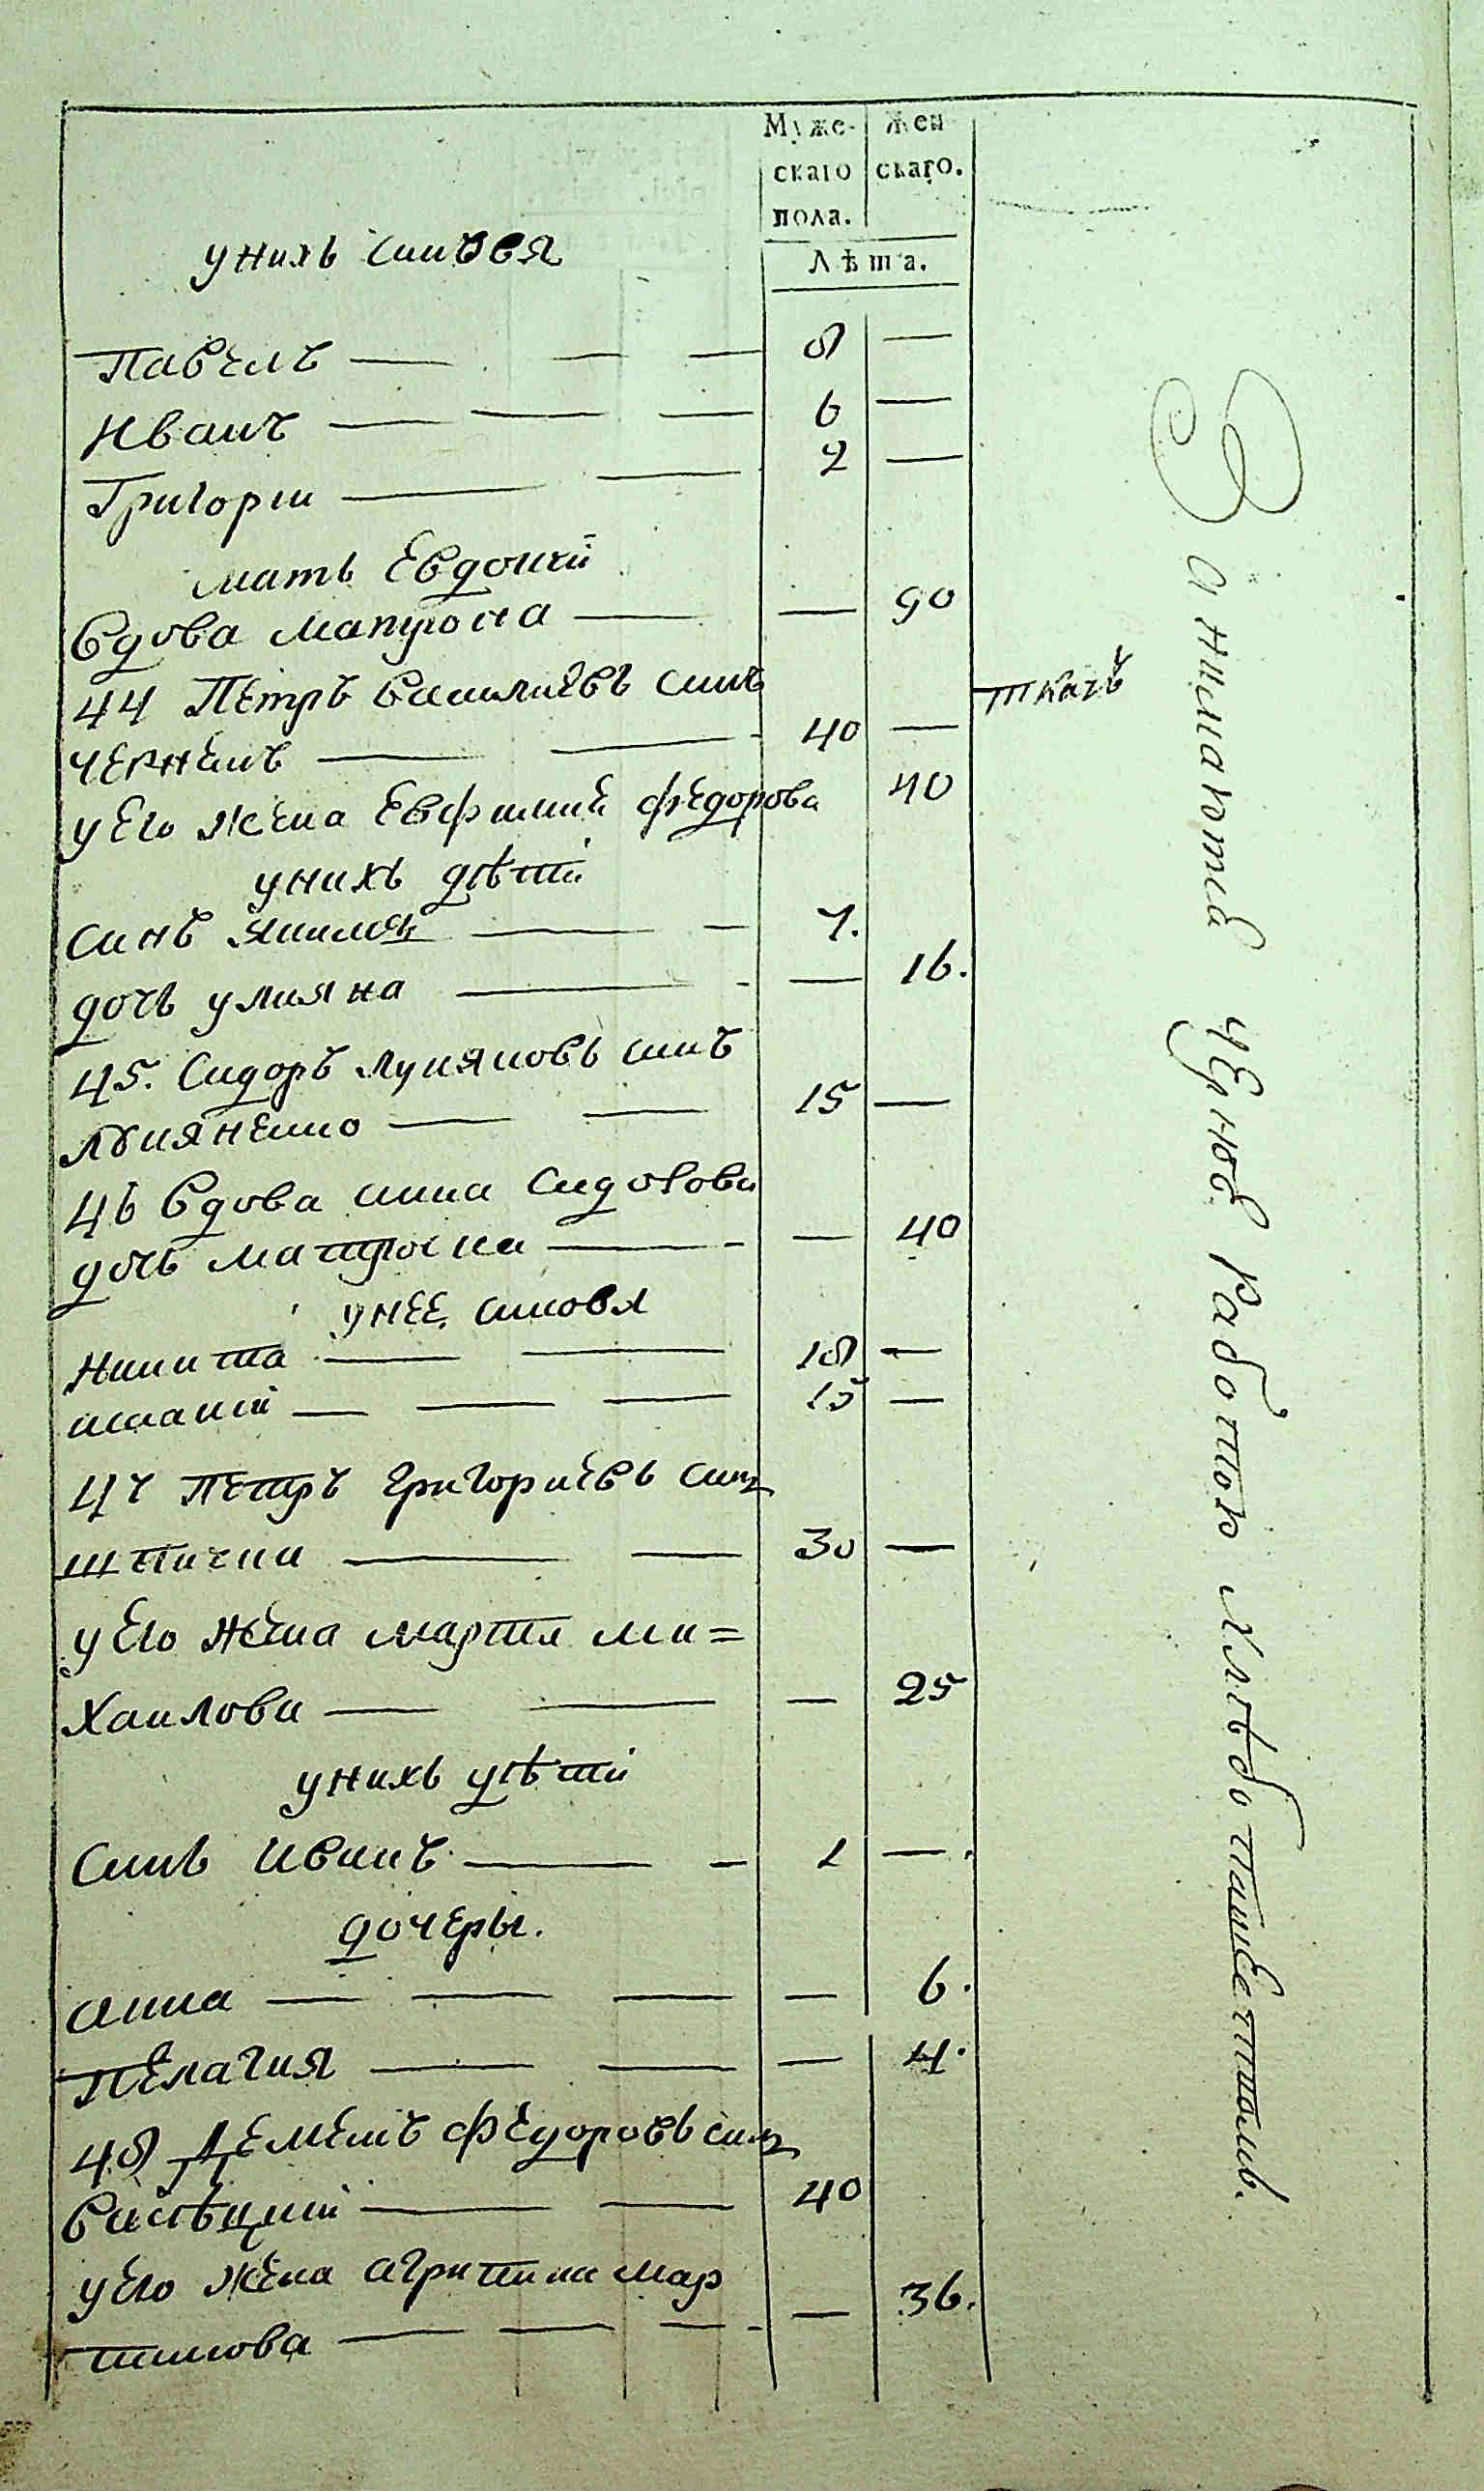 Муже-
скаго
пола.
Жен
скаго.
Лѣта.
у нихъ синовя
Павелъ — — — 8 —
Иванъ — — — 6 —
Григории — — 2 —
мать Евдокий
вдова Матрона — — 90
44 Петръ Василиевъ синъ
Чернецъ — — 40 —
ткачъ
у его жена Евфимия Федорова 40
у нихъ дѣти
синъ Якимъ — — 7.
дочь Улияна — — — 16.
45. Сидоръ Лукяновъ синъ
Лукяненко — — 15 —
46 вдова Анна Сидорова
дочь Матрона — — — 40
у неё синовя
Никита — — 18 —
— — — 15 —
47 Петръ Григориевъ синъ
— — 30 —
у его жена Марта Ми=
хаилова — — — 25
у нихъ дѣти
Синъ Иванъ — — 1 —
дочеры.
Анна — — — — 6.
Пелагия — — — 4.
48 Демянъ Федоровъ синъ
— — 40
у его жена Агрипина Мар
тинова — — — — — 36.
Занимаются черною работою хлебопашественною.